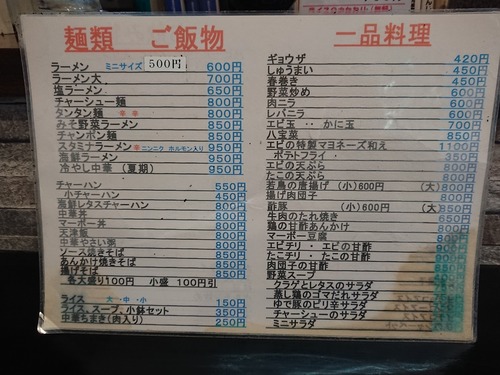 麺類 ご飯物
ラーメン ミニサイズ 500円 600円
ラーメン大 700円
塩ラーメン 650円
チャーシュー麺 800円
タンタン麺 辛 辛 800円
みそ野菜ラーメン 850円
チャンポン麺 850円
スタミナラーメン 辛 ニンニク ホルモン入り 950円
海鮮ラーメン 950円
冷やし中華 (夏期) 950円
チャーハン 550円
小チャーハン 450円
海鮮レタスチャーハン 800円
中華丼 800円
マーボー丼 800円
天津飯 800円
中華やさい粥 800円
ソース焼きそば 850円
あんかけ焼きそば 850円
揚げそば 850円
各大盛り100円 小盛 100円引
ライス 大・中・小 150円
スープ、小鉢セット 350円
中華ちまき(肉入り) 250円
一品料理
ギョウザ 420円
しゅうまい 450円
春巻き 450円
野菜炒め 600円
肉ニラ 600円
レバニラ 600円
エビ玉 ・・ かに玉 700円
八宝菜 850円
エビの特製マヨネーズ和え 1100円
ポテトフライ 350円
エビの天ぷら 800円
たこの天ぷら 800円
若鳥の唐揚げ (小)600円 (大)800円
揚げ肉団子 800円
酢豚 (小)600円 (大)850円
牛肉のたれ焼き 650円
鶏の甘酢あんかけ 800円
マーボー豆腐 800円
エビチリ ・ エビの甘酢
たこチリ ・ たこの甘酢
肉団子の甘酢
野菜スープ
クラゲとレタスのサラダ
蒸し鶏のゴマだれサラダ
ゆで豚のピリ辛サラダ
チャーシューのサラダ
ミニサラダ